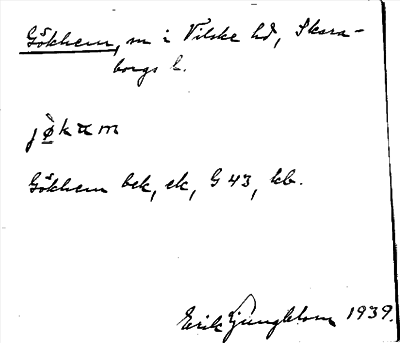 Gökhem, sn i Vilske hd, Skara-
borgs l.
jø̀kæm
Gökhem bck, ek, G 43, kb.
Erik Ljungblom 1939.